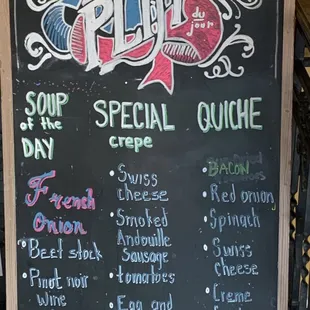 PLAT
du
jour
SOUP
of the
DAY
French
Onion
• Beef stock
• Pinot noir
wine
SPECIAL
crepe
• Swiss
cheese
• Smoked
Andouille
Sausage
• tomatoes
• Egg and
QUICHE
• BACON
• Red onion
• Spinach
• Swiss
cheese
• Creme